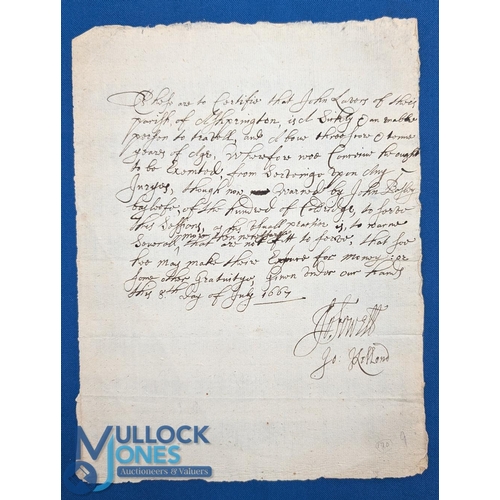 These are to Certifie that John Lavers of the
parish of Ashprington, is A Sickly & an unable
person to travell, and Above three score & tenne
yeares of Age, Wherefore wee Conceive he ought
to be Exempted, from Serveinge upon Any
Juryes, though now Warned by John
of the Hundred of Colridge, to serve
this Sessions, as his usuall practice is, to warne
severall, that are not fitt to serve, that soe
hee may make them for money or
some other Gratuitye, Given under our hands
this 8th Day of July 1667
Jo: Holland
MULLOCK
JONES
Auctioneers & Valuers